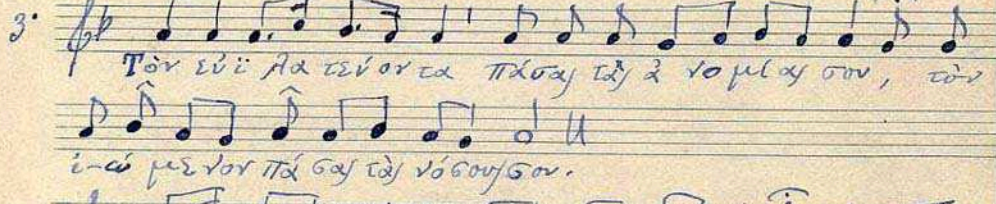 3. Τὸν εὐϊ λα τεύ ον τα πάσας τὰς ἀ νο μί ας σου, τὸν
ἰ-ώ με νον πά σας τὰς νόσους σου.